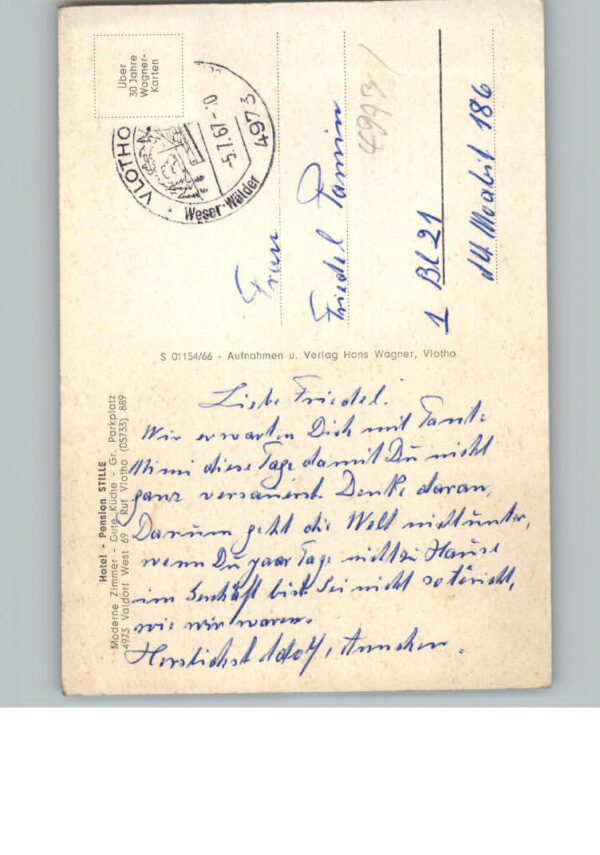 Über
30 Jahre
Wagner-
Karten
VLOTHO
-5.7.67-0
4973
Weser-Wälder
4973
Frau
Friedel
1 Bl 21
Moabit 186
S 01154/66 - Aufnahmen u. Verlag Hans Wagner, Vlotho
Hotel - Pension STILLE
Moderne Zimmer - Gute Küche - Gr. Parkplatz
4973 Valdorf West 69 Ruf Vlotho (05733) 889
Liebe Friedel!
Wir erwarten Dich mit Tante
Mimi diese Tage damit Du nicht
ganz versauerst. Denke daran,
Darum geht die Welt nicht unter,
wenn Du paar Tage nicht zu Hause
im Geschäft bist. Sei nicht so töricht,
wie wir waren.
Herzlichst Adolf, Annchen.